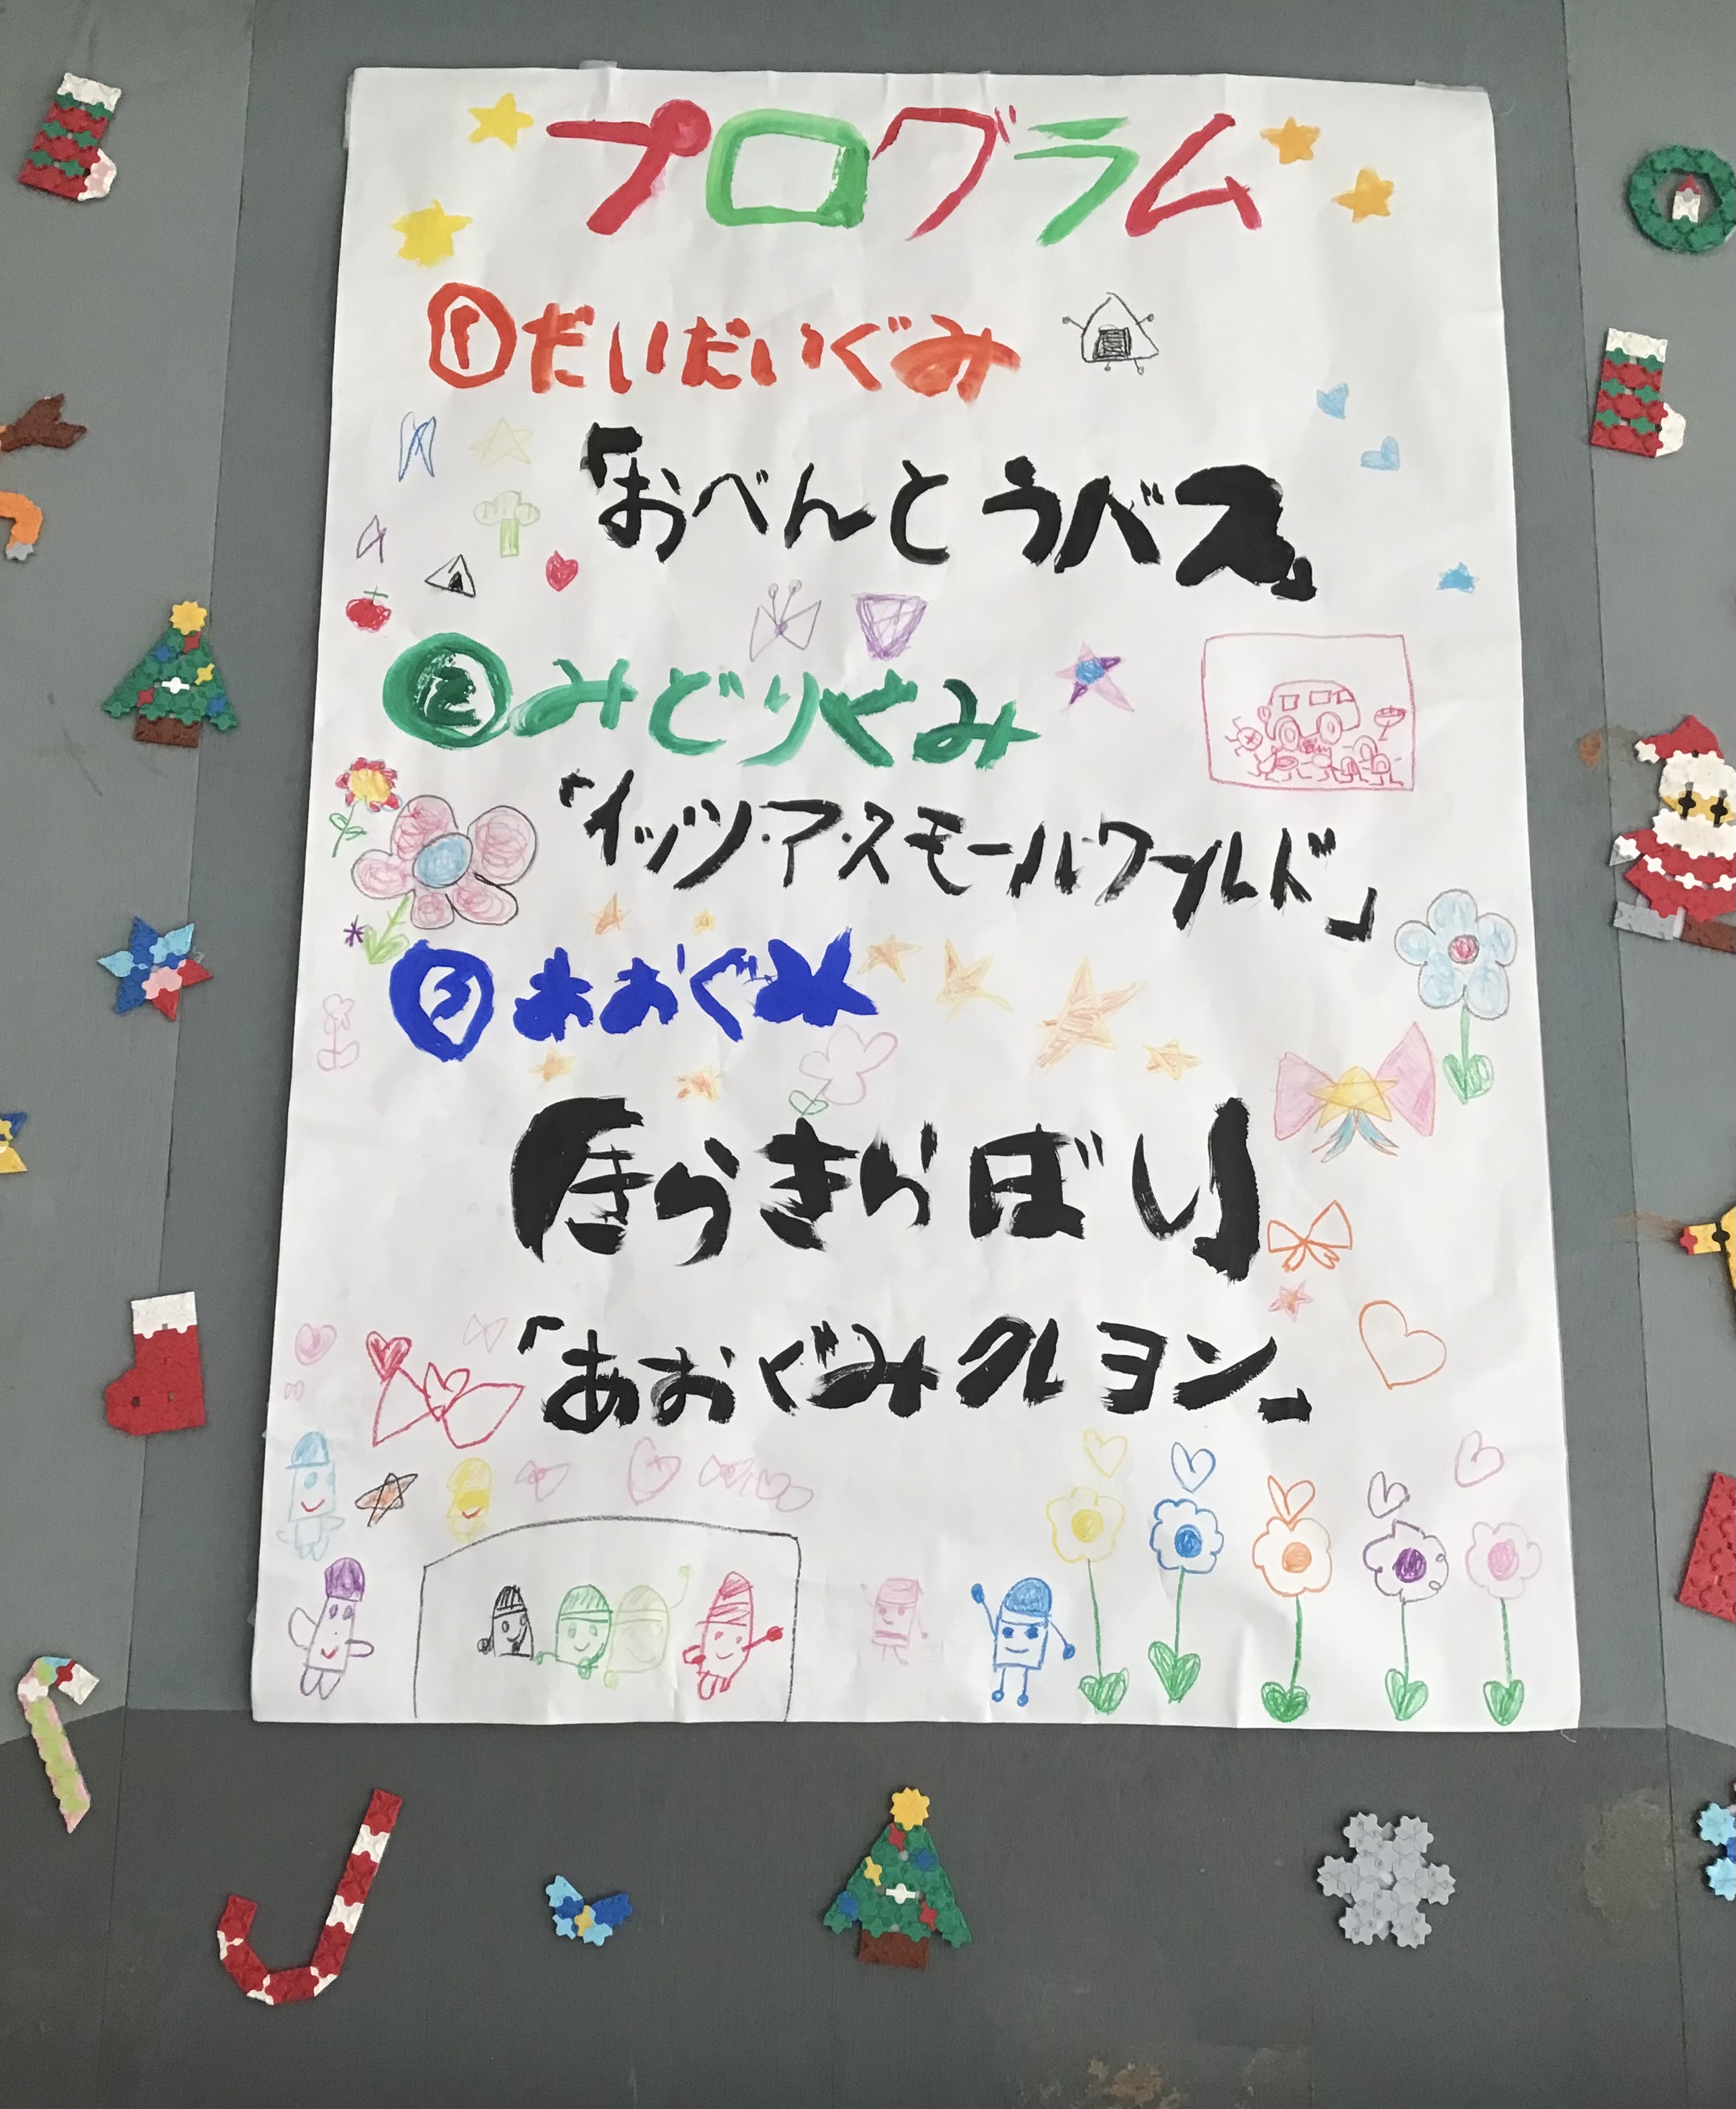 プログラム
①だいだいぐみ
「おべんとうバス」
②みどりぐみ
「イッツ・ア・スモールワールド」
③あおぐみ
「きらきらぼし」
「あおぐみクレヨン」